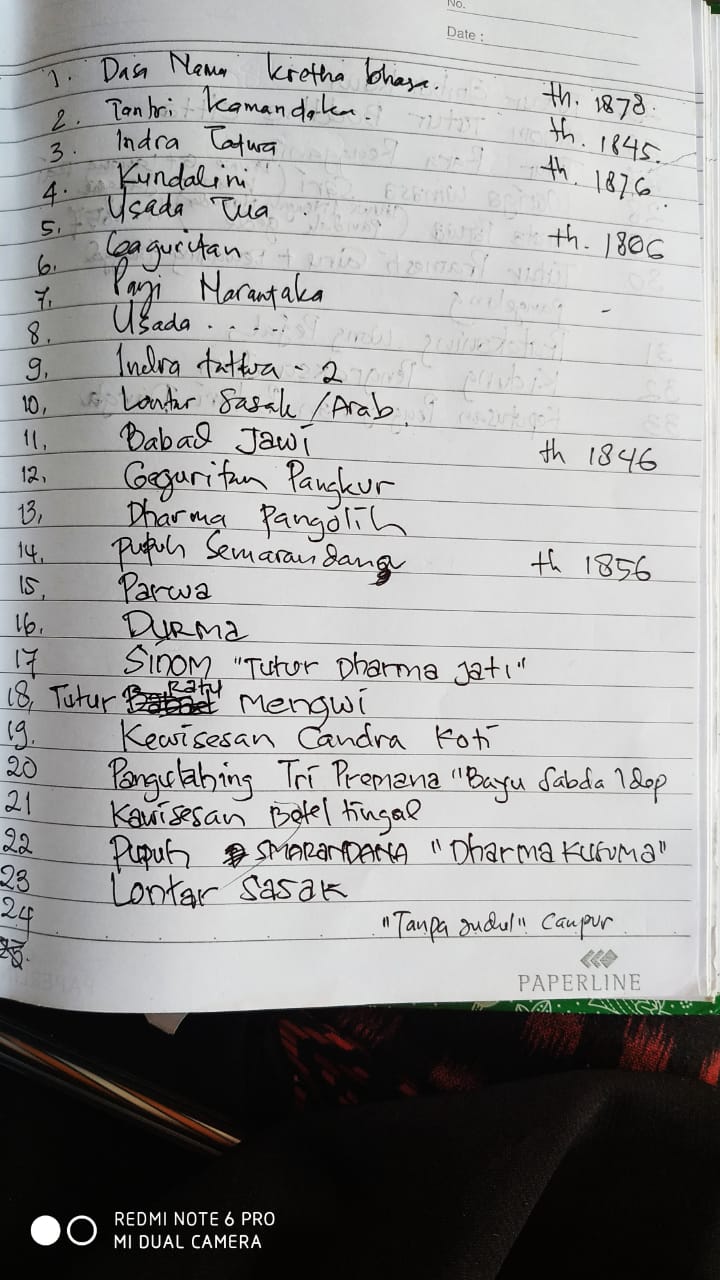 No.
Date :
1. Dasa Nama kretha bhasa. th. 1878.
2. Tantri kamandaka. th. 1845.
3. Indra Tatwa th. 1876.
4. Kundalini
5. Usada Tua th. 1806
6. Gaguritan
7. Panji Marantaka -
8. Usada . . . . .
9. Indra tattwa - 2
10. Lontar Sasak / Arab.
11. Babad Jawi th 1846
12. Geguritan Pangkur
13. Dharma Pangolih
14. Pupuh Semarandana th 1856
15. Parwa
16. DURMA
17 SINOM "Tutur Dharma Jati"
18, Tutur Ratu Mengwi
19. Kewisesan Candra Koti
20 Pangulahing Tri Premana "Bayu Sabda Idep
21 Kawisesan Botel tingal
22 Pupuh SMARANDANA "Dharma Kusuma"
23 Lontar Sasak
24 "Tanpa Judul" Campur
25.
PAPERLINE
REDMI NOTE 6 PRO
MI DUAL CAMERA